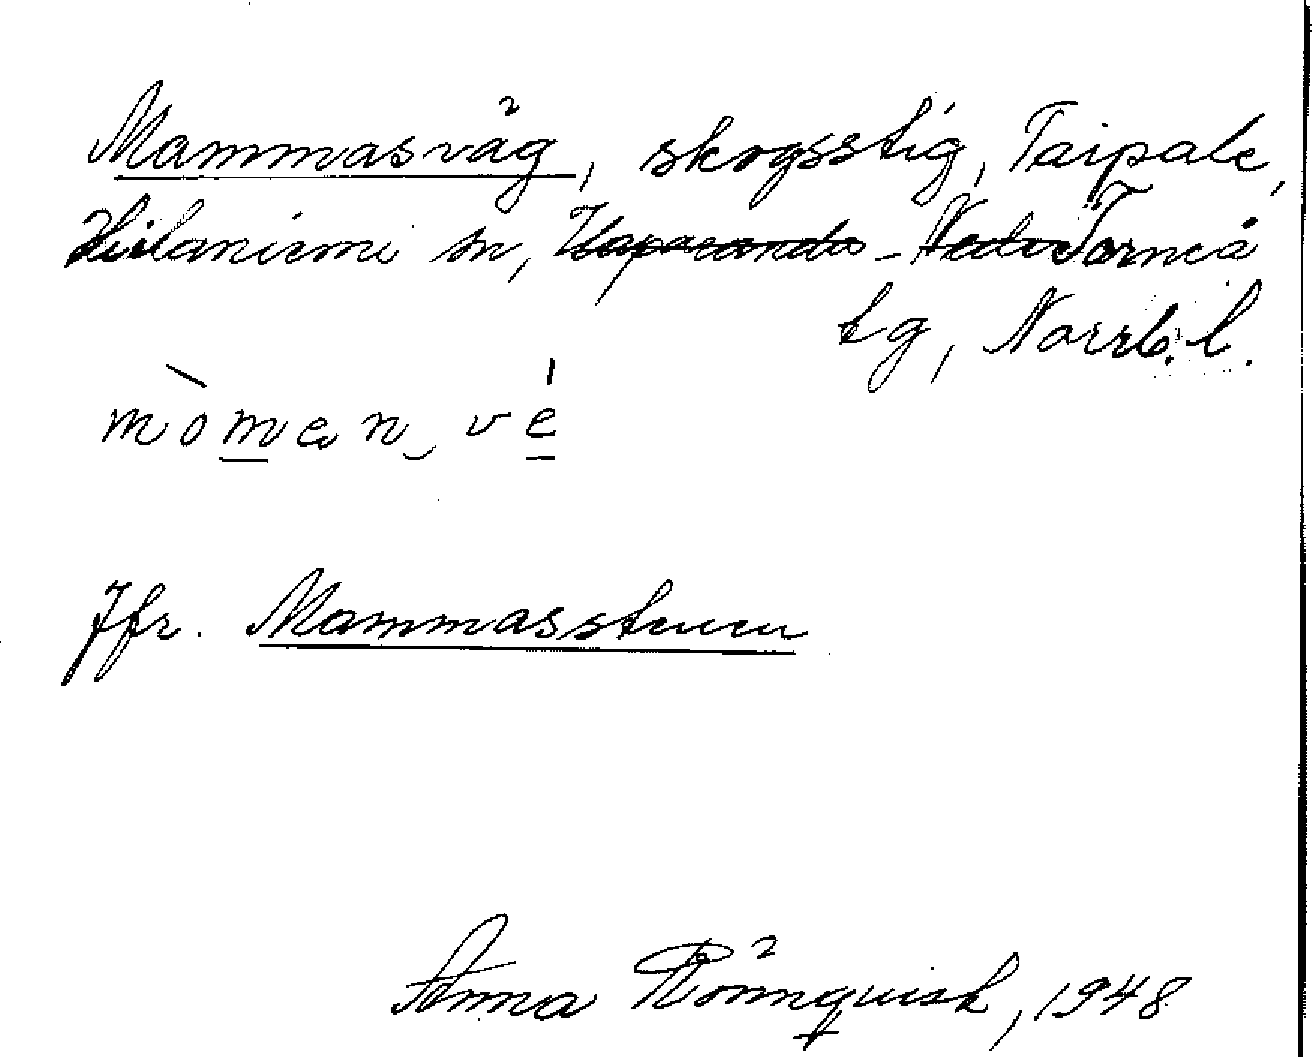 Mammasväg, skogsstig, Taipale,
Hietaniemi sn, Haparanda - Nedre Torneå
tg, Norrb. l.
mòmen‿vé
Jfr. Mammasstenen
Anna Rönnquist, 1948